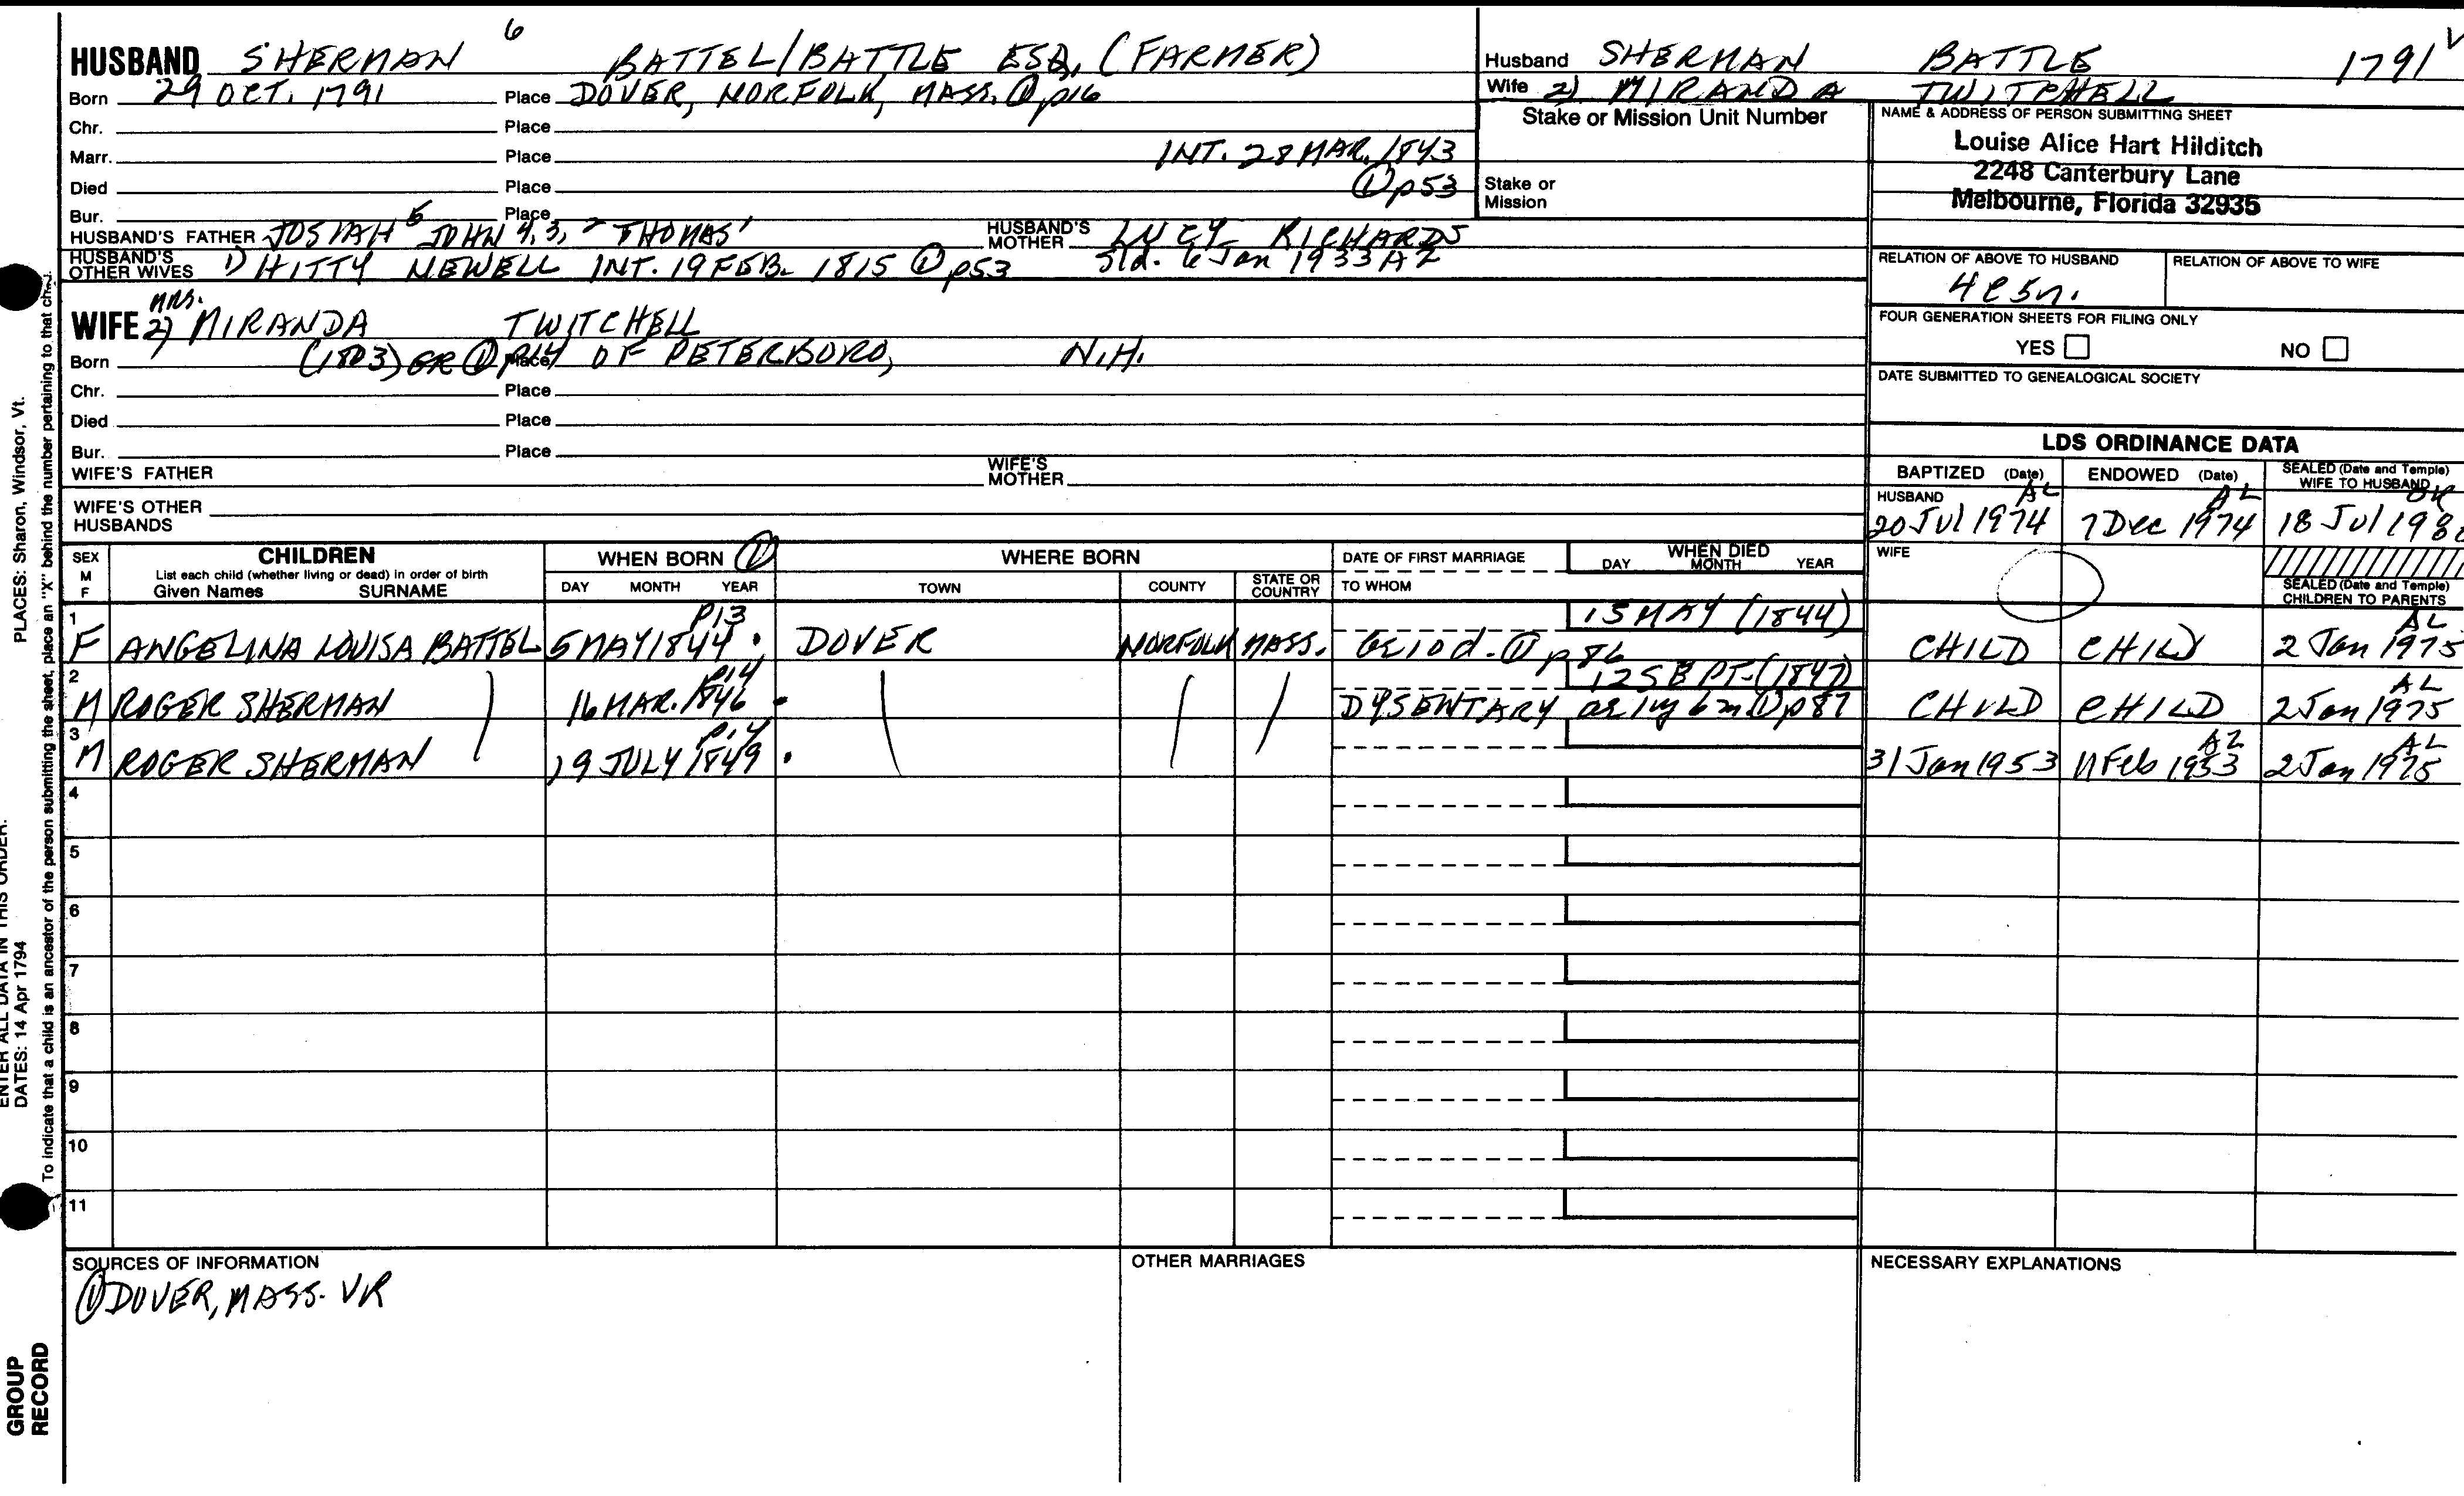 HUSBAND SHERMAN 6 BATTEL/BATTLE ESQ. (FARMER)
Born 29 OCT. 1791 Place DOVER, NORFOLK, MASS. ① p16
Chr. Place
Marr. Place INT. 28 MAR. 1843
Died Place ① p53
Bur. Place
HUSBAND'S FATHER JOSIAH 5 JOHN 4, 3, 2 THOMAS 1 HUSBAND'S MOTHER LUCY RICHARDS
HUSBAND'S OTHER WIVES 1) HITTY NEWELL INT. 19 FEB. 1815 ① p53 Sld. 6 Jan 1933 AZ
MRS.
WIFE 2) MIRANDA TWITCHELL
Born (1803) GR ① P14 Place OF PETERBORO, N.H.
Chr. Place
Died Place
Bur. Place
WIFE'S FATHER WIFE'S MOTHER
WIFE'S OTHER HUSBANDS
Husband SHERMAN BATTLE 1791
Wife 2) MIRANDA TWITCHELL
Stake or Mission Unit Number
Stake or Mission
NAME & ADDRESS OF PERSON SUBMITTING SHEET
Louise Alice Hart Hilditch
2248 Canterbury Lane
Melbourne, Florida 32935
RELATION OF ABOVE TO HUSBAND RELATION OF ABOVE TO WIFE
FOUR GENERATION SHEETS FOR FILING ONLY
YES NO
DATE SUBMITTED TO GENEALOGICAL SOCIETY
LDS ORDINANCE DATA
BAPTIZED (Date) ENDOWED (Date) SEALED (Date and Temple) WIFE TO HUSBAND
HUSBAND AL AL
20 Jul 1974 7 Dec 1974 18 Jul 198
WIFE
SEALED (Date and Temple) CHILDREN TO PARENTS
SEX M F CHILDREN WHEN BORN ① WHERE BORN DATE OF FIRST MARRIAGE WHEN DIED
List each child (whether living or dead) in order of birth
Given Names SURNAME DAY MONTH YEAR TOWN COUNTY STATE OR COUNTRY TO WHOM DAY MONTH YEAR
1 P13 15 MAY (1844) AL
F ANGELINA LOUISA BATTEL 5 MAY 1844 DOVER NORFOLK MASS. ① p86 CHILD CHILD 2 Jan 1975
2 P14 12 SEPT. (1847) AL
M ROGER SHERMAN 16 MAR. 1846 DYSENTARY ae 1y 6m ① p87 CHILD CHILD 2 Jan 1975
3 P14 AZ AL
M ROGER SHERMAN 19 JULY 1849 31 Jan 1953 11 Feb 1953 2 Jan 1975
4
5
6
7
8
9
10
11
SOURCES OF INFORMATION OTHER MARRIAGES NECESSARY EXPLANATIONS
① DOVER, MASS. VR
PLACES: Sharon, Windsor, Vt.
ENTER ALL DATA IN THIS ORDER:
DATES: 14 Apr 1794
To indicate that a child is an ancestor of the person submitting the sheet, place an "X" behind the number pertaining to that
GROUP RECORD